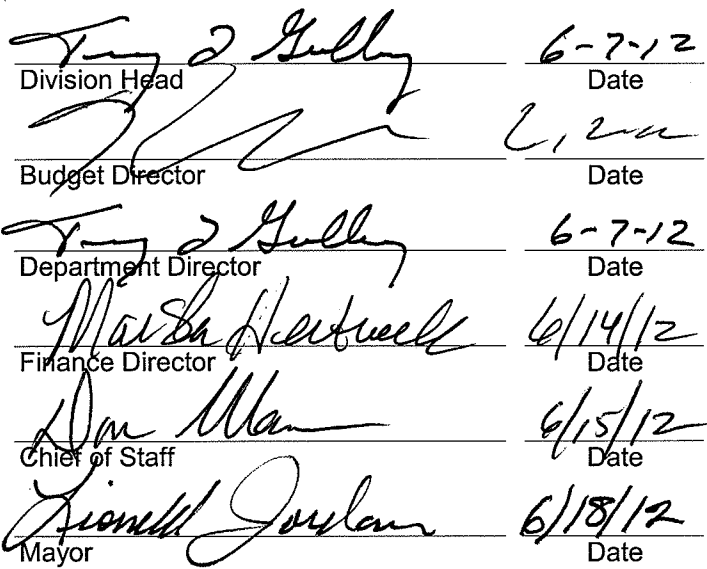 Terry Gulley 6-7-12
Division Head Date
Budget Director Date
Terry Gulley 6-7-12
Department Director Date
Marsha Hertweck 6/14/12
Finance Director Date
Don Marr 6/15/12
Chief of Staff Date
Lioneld Jordan 6/18/12
Mayor Date